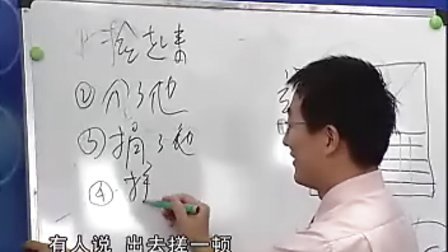 起来
②分了他
③捐了他
④
有人说 出去搓一顿